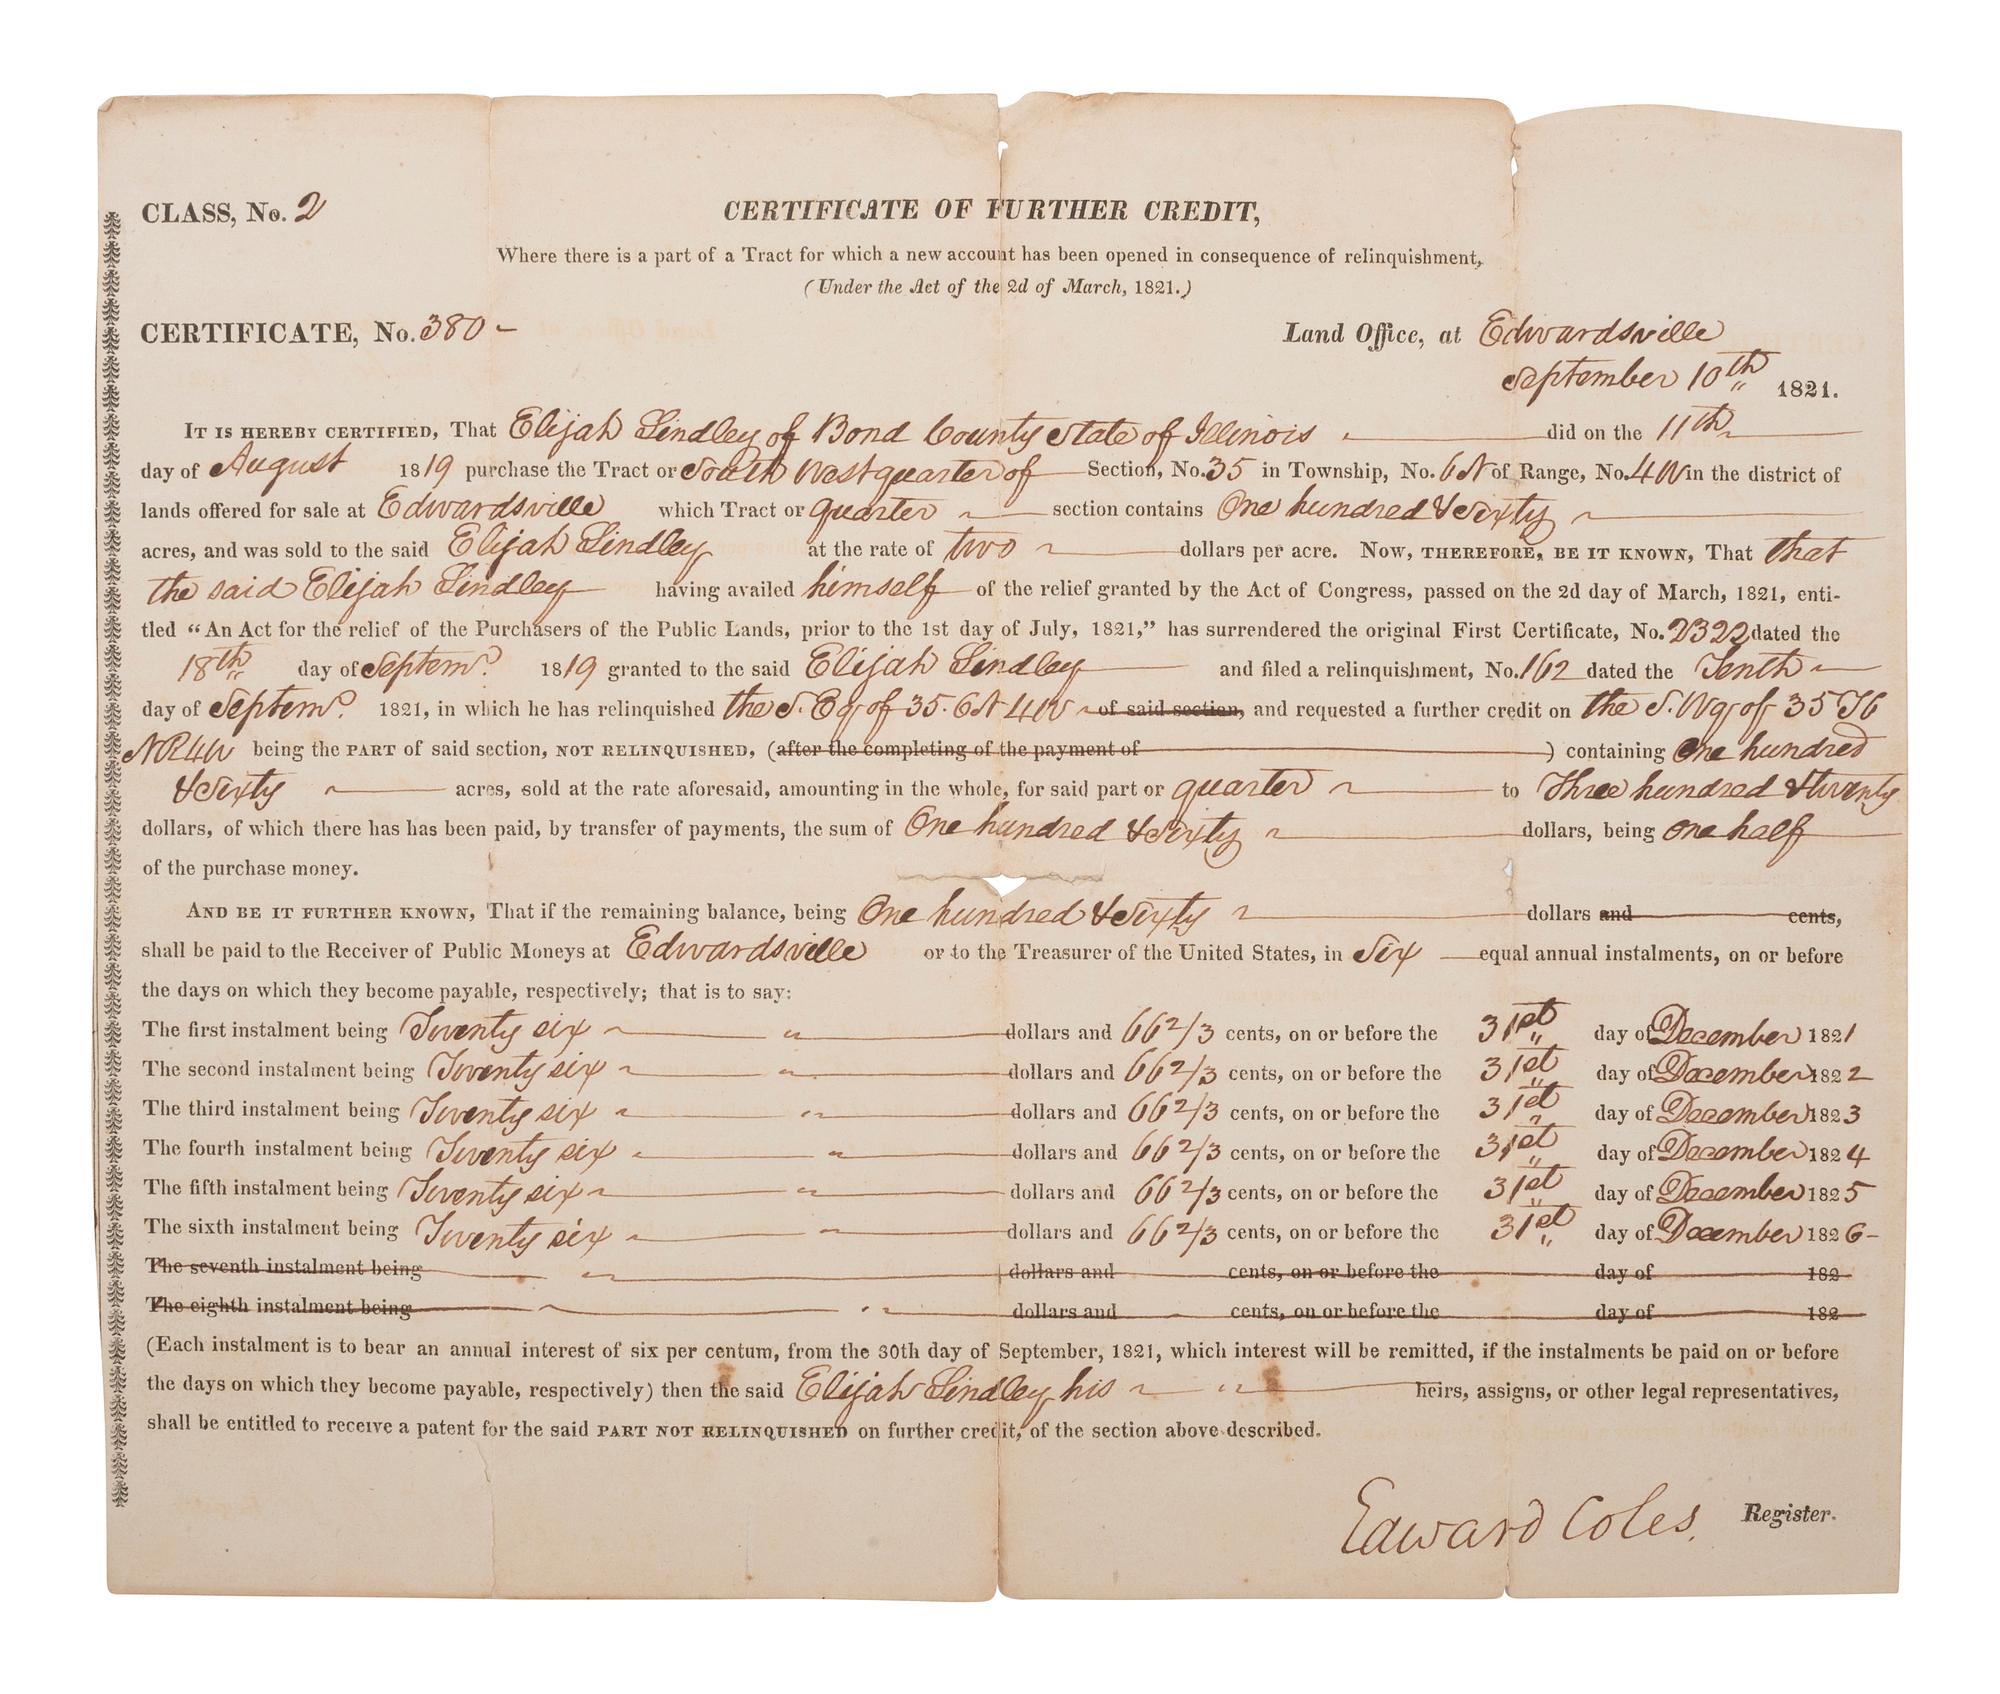 CLASS, No. 2
CERTIFICATE OF FURTHER CREDIT,
Where there is a part of a Tract for which a new account has been opened in consequence of relinquishment,
(Under the Act of the 2d of March, 1821.)
CERTIFICATE, No. 380 -
Land Office, at Edwardsville
September 10th 1821.
IT IS HEREBY CERTIFIED, That Elijah Lindley of Bond County State of Illinois did on the 11th
day of August 1819 purchase the Tract or South West quarter of Section, No. 35 in Township, No. 6 N of Range, No. 4 W in the district of
lands offered for sale at Edwardsville which Tract or quarter section contains One hundred & Sixty
acres, and was sold to the said Elijah Lindley at the rate of two dollars per acre. NOW, THEREFORE, BE IT KNOWN, That that
the said Elijah Lindley having availed himself of the relief granted by the Act of Congress, passed on the 2d day of March, 1821, enti-
tled "An Act for the relief of the Purchasers of the Public Lands, prior to the 1st day of July, 1821," has surrendered the original First Certificate, No. 2322 dated the
18th day of Septemr. 1819 granted to the said Elijah Lindley and filed a relinquishment, No. 162 dated the Tenth
day of Septemr. 1821, in which he has relinquished the S. E qr of 35. 6 N 4 W of said section, and requested a further credit on the S. W qr of 35 T 6
N R 4 W being the PART of said section, NOT RELINQUISHED, (after the completing of the payment of ) containing One hundred
& Sixty acres, sold at the rate aforesaid, amounting in the whole, for said part or quarter to Three hundred & twenty
dollars, of which there has has been paid, by transfer of payments, the sum of One hundred & Sixty dollars, being one half
of the purchase money.
AND BE IT FURTHER KNOWN, That if the remaining balance, being One hundred & Sixty dollars and cents,
shall be paid to the Receiver of Public Moneys at Edwardsville or to the Treasurer of the United States, in Six equal annual instalments, on or before
the days on which they become payable, respectively; that is to say:
The first instalment being Twenty six " dollars and 66 2/3 cents, on or before the 31st day of December 1821
The second instalment being Twenty six " dollars and 66 2/3 cents, on or before the 31st day of December 1822
The third instalment being Twenty six " dollars and 66 2/3 cents, on or before the 31st day of December 1823
The fourth instalment being Twenty six " dollars and 66 2/3 cents, on or before the 31st day of December 1824
The fifth instalment being Twenty six " dollars and 66 2/3 cents, on or before the 31st day of December 1825
The sixth instalment being Twenty six " dollars and 66 2/3 cents, on or before the 31st day of December 1826-
The seventh instalment being " dollars and cents, on or before the day of 182
The eighth instalment being " dollars and cents, on or before the day of 182
(Each instalment is to bear an annual interest of six per centum, from the 30th day of September, 1821, which interest will be remitted, if the instalments be paid on or before
the days on which they become payable, respectively) then the said Elijah Lindley his " heirs, assigns, or other legal representatives,
shall be entitled to receive a patent for the said PART NOT RELINQUISHED on further credit, of the section above described.
Edward Coles. Register.